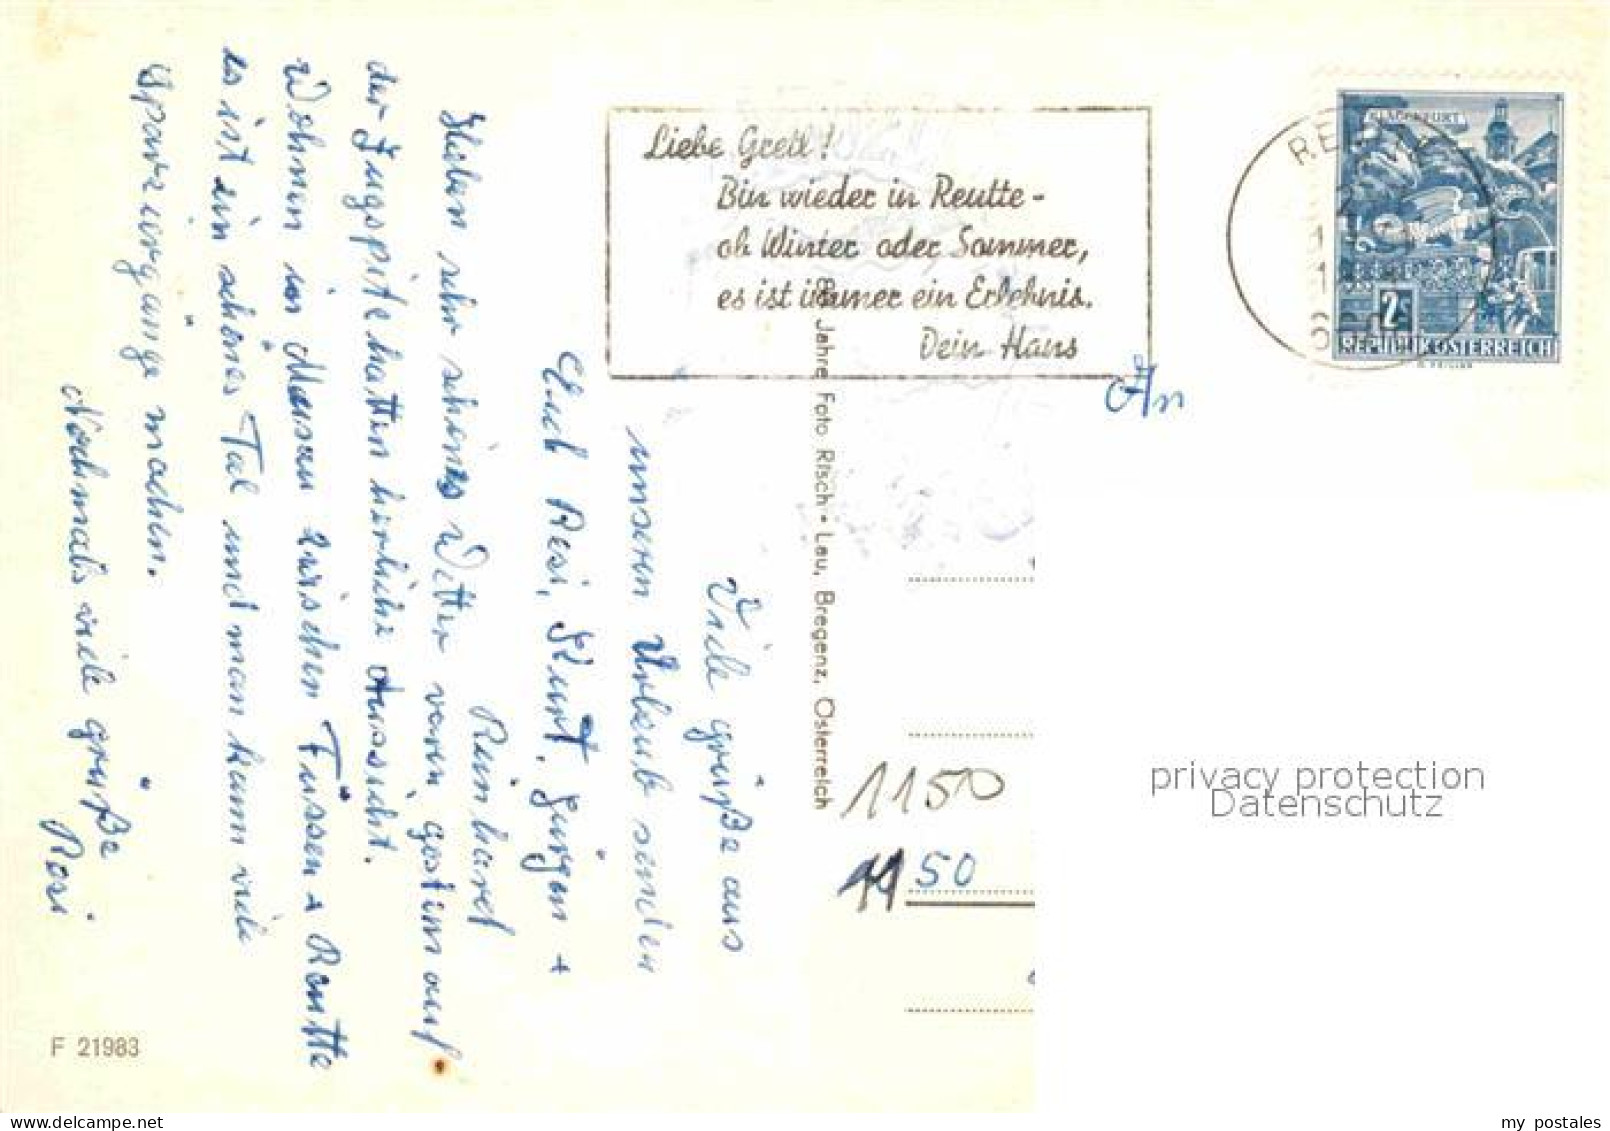 Viele grüße aus
unseren Urlaub senden
Euch Resi, Kurt, Jürgen +
Reinhard
Haben sehr schönes Wetter waren gestern auf
der Zugspitze hatten herliche Aussicht.
Wohnen in Musau zwischen Füssen + Reutte
es ist ein schönes Tal und man kann viele
Spaziergänge machen.
Nochmals viele grüße
Resi
F 21983
Liebe Gretl!
Bin wieder in Reutte -
ob Winter oder Sommer,
es ist immer ein Erlebnis.
Dein Hans
Jahre Foto Risch-Lau, Bregenz, Österreich
KLAGENFURT
2s
REPUBLIK ÖSTERREICH
An
1150
1150
privacy protection
Datenschutz
my postales